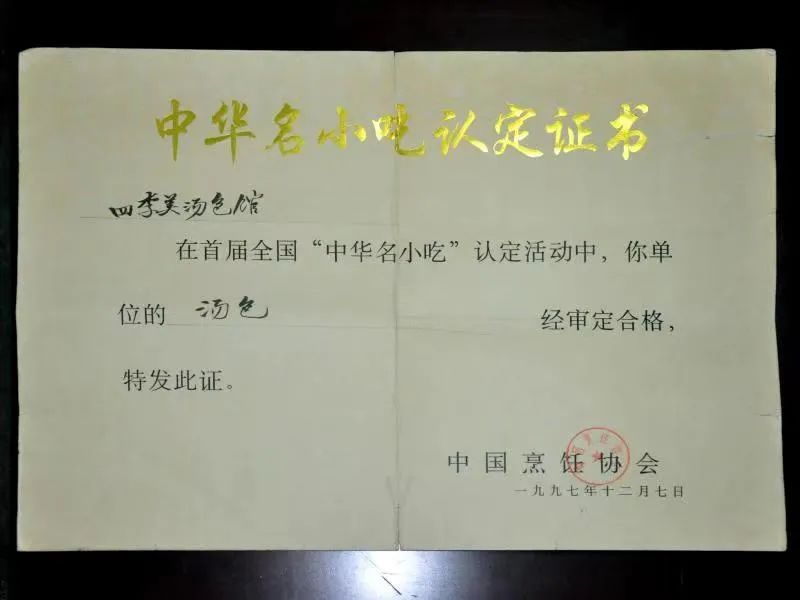 中华名小吃认定证书
四季美汤包馆
在首届全国“中华名小吃”认定活动中，你单
位的 汤包 经审定合格，
特发此证。
中国烹饪协会
一九九七年十二月七日